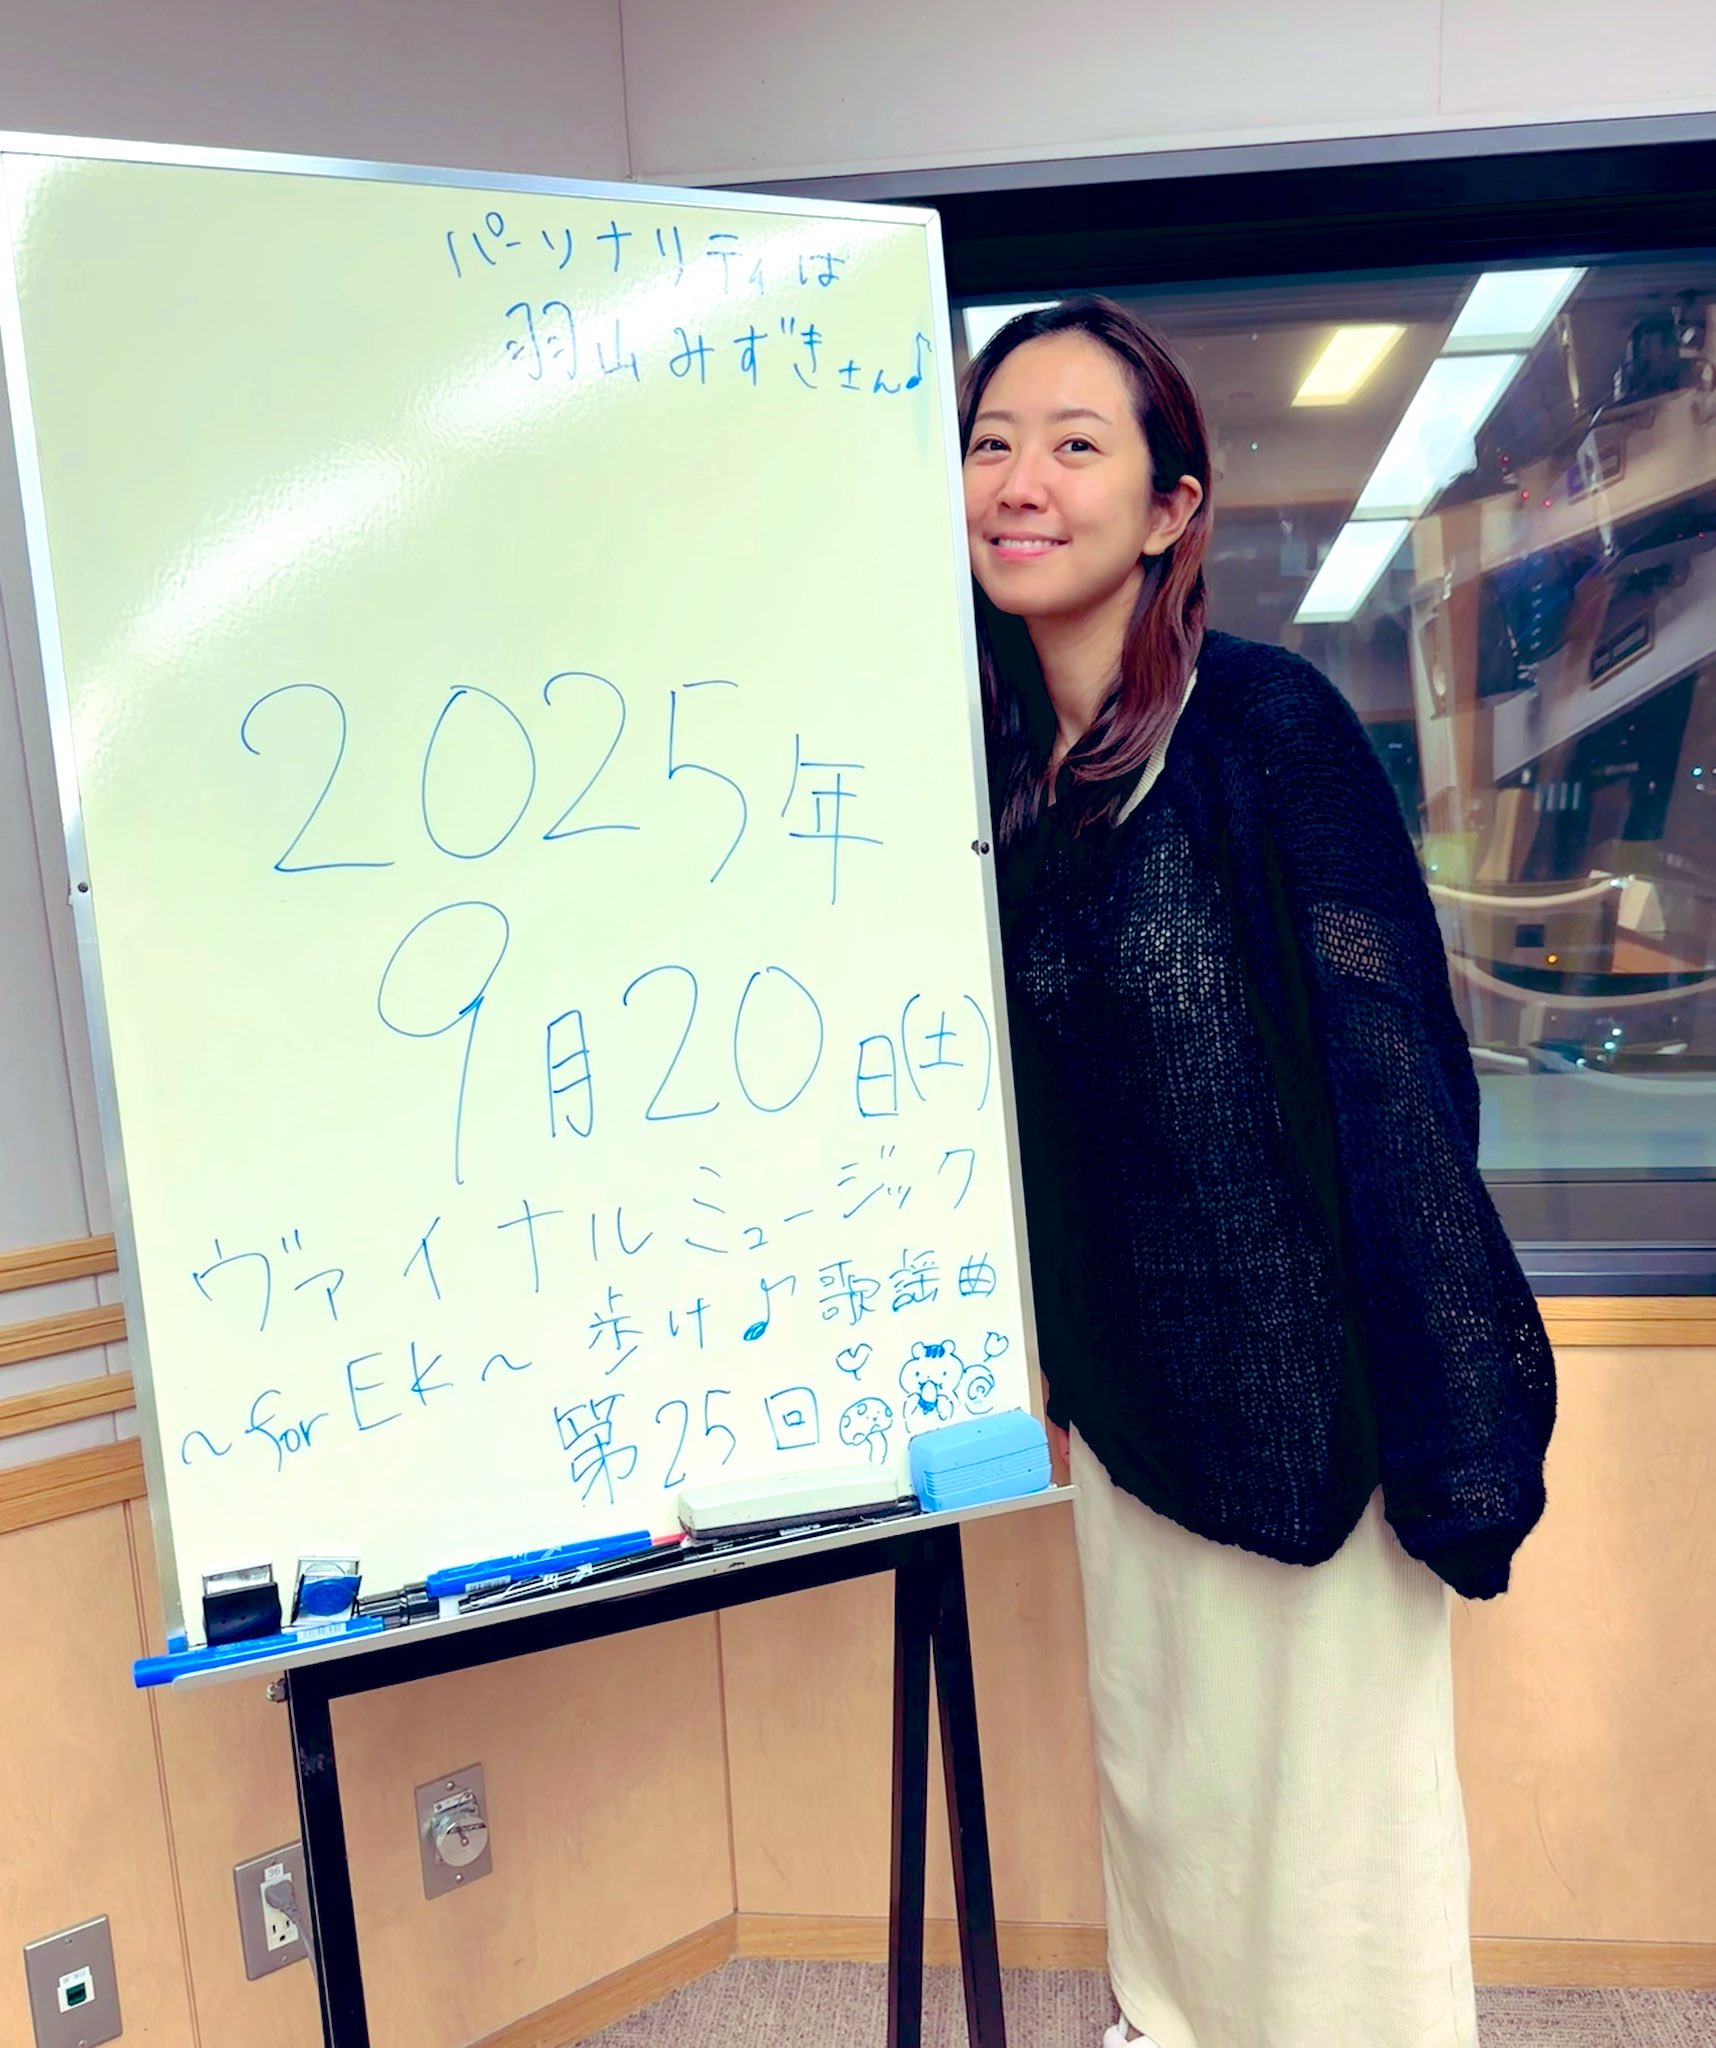 パーソナリティは
羽山みずきさん♪
2025年
9月20日(土)
ヴァイナルミュージック
〜for EK〜 歩け♪歌謡曲
第25回
36